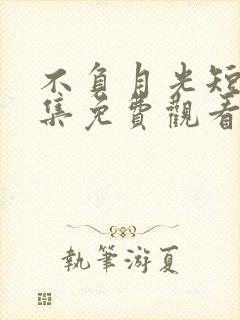 不負月光短
集免費觀看
執筆游夏